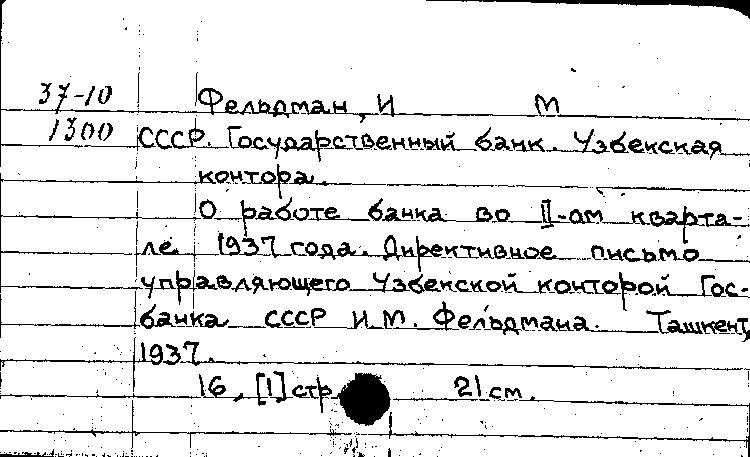 37-10 Фельдман, И М
1300 СССР. Государственный банк. Узбекская
контора.
О работе банка во II-ом кварта-
ле 1937 года. Директивное письмо
управляющего Узбекской конторой Гос-
банка СССР И.М. Фельдмана. Ташкент,
1937.
16, [1] стр. 21 см.